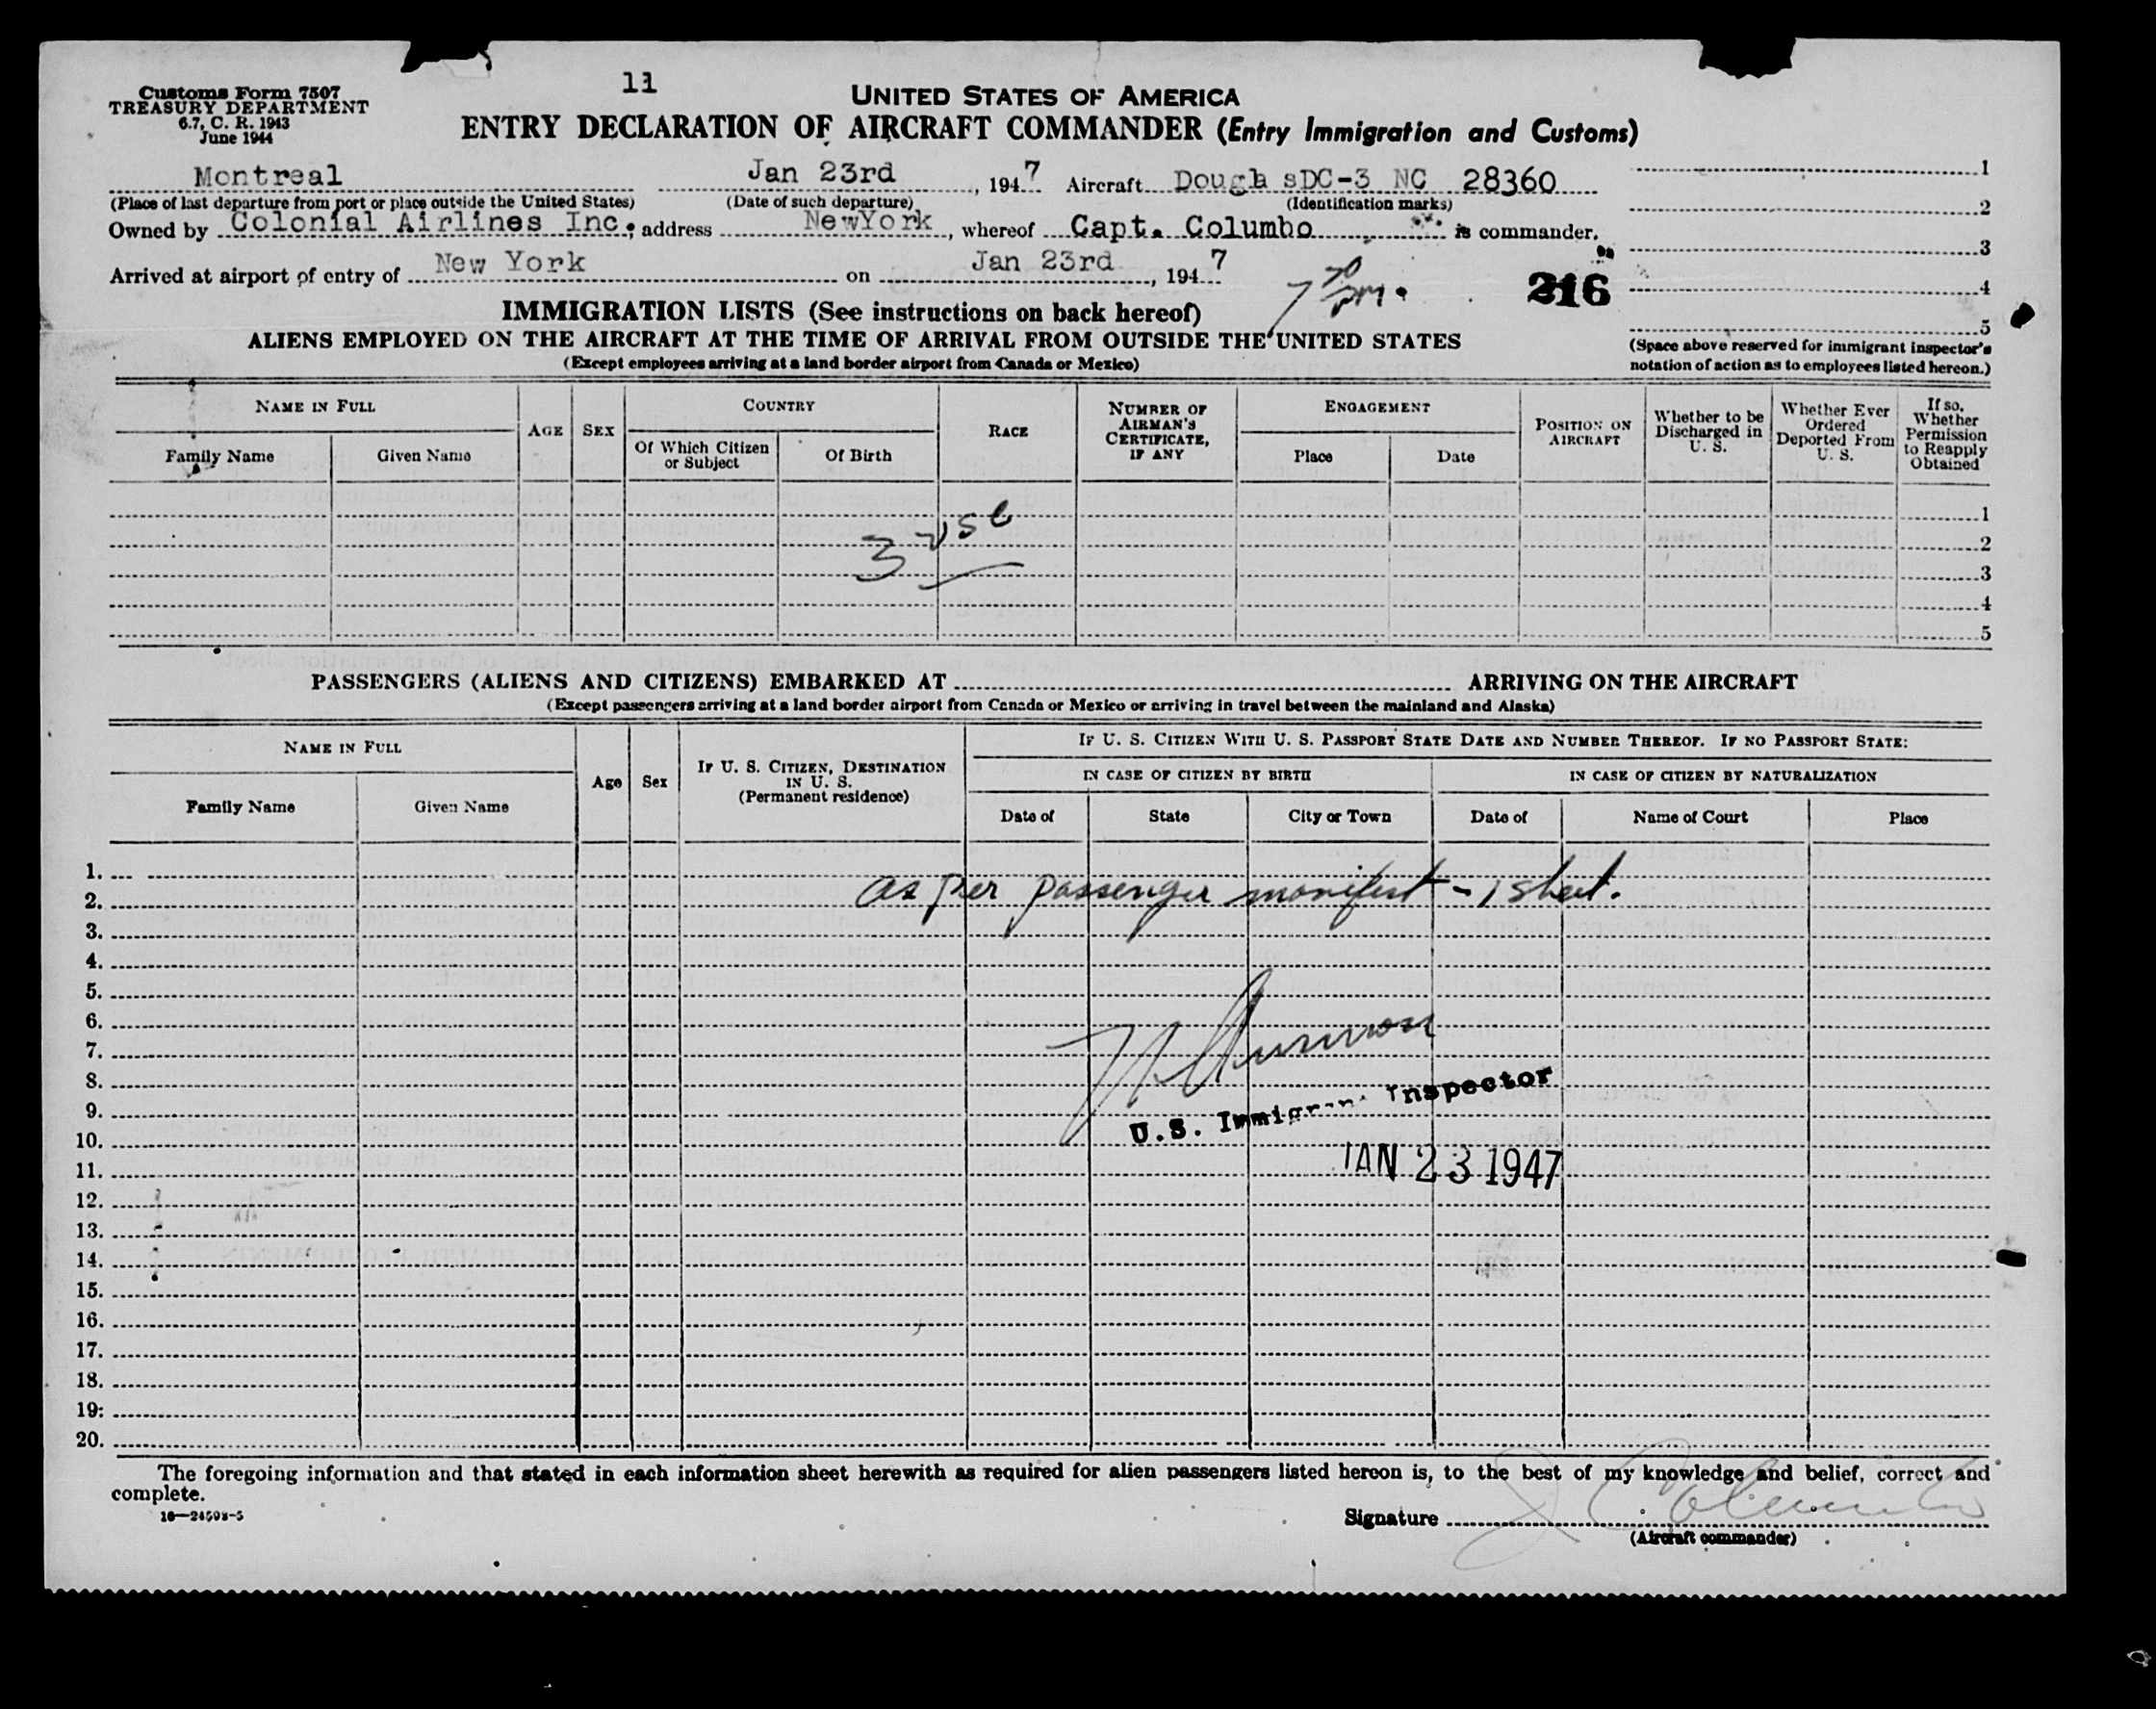 Customs Form 7507
TREASURY DEPARTMENT
6.7, C. R. 1943
June 1944
11
UNITED STATES OF AMERICA
ENTRY DECLARATION OF AIRCRAFT COMMANDER (Entry Immigration and Customs)
Montreal Jan 23rd, 1947 Aircraft Dougla sDC-3 NC 28360
(Place of last departure from port or place outside the United States) (Date of such departure) (Identification marks)
Owned by Colonial Airlines Inc. address NewYork, whereof Capt. Columbo is commander.
Arrived at airport of entry of New York on Jan 23rd, 1947
7 30 pm.
216
1
2
3
4
5
(Space above reserved for immigrant inspector's
notation of action as to employees listed hereon.)
IMMIGRATION LISTS (See instructions on back hereof)
ALIENS EMPLOYED ON THE AIRCRAFT AT THE TIME OF ARRIVAL FROM OUTSIDE THE UNITED STATES
(Except employees arriving at a land border airport from Canada or Mexico)
NAME IN FULL
Family Name Given Name
AGE SEX
COUNTRY
Of Which Citizen or Subject Of Birth
RACE
NUMBER OF AIRMAN'S CERTIFICATE, IF ANY
ENGAGEMENT
Place Date
POSITION ON AIRCRAFT
Whether to be Discharged in U. S.
Whether Ever Ordered Deported From U. S.
If so, Whether Permission to Reapply Obtained
1
2
3
4
5
3 usc
PASSENGERS (ALIENS AND CITIZENS) EMBARKED AT ARRIVING ON THE AIRCRAFT
(Except passengers arriving at a land border airport from Canada or Mexico or arriving in travel between the mainland and Alaska)
NAME IN FULL
Family Name Given Name
Age Sex
IF U. S. CITIZEN, DESTINATION IN U. S. (Permanent residence)
IF U. S. CITIZEN WITH U. S. PASSPORT STATE DATE AND NUMBER THEREOF. IF NO PASSPORT STATE:
IN CASE OF CITIZEN BY BIRTH IN CASE OF CITIZEN BY NATURALIZATION
Date of State City or Town Date of Name of Court Place
1.
2. as per passenger manifest - 1 sheet.
3.
4.
5.
6.
7.
8.
9.
U.S. Inspector
10.
11. JAN 23 1947
12.
13.
14.
15.
16.
17.
18.
19.
20.
The foregoing information and that stated in each information sheet herewith as required for alien passengers listed hereon is, to the best of my knowledge and belief, correct and
complete.
16—24598-5
Signature J Columbo
(Aircraft commander)